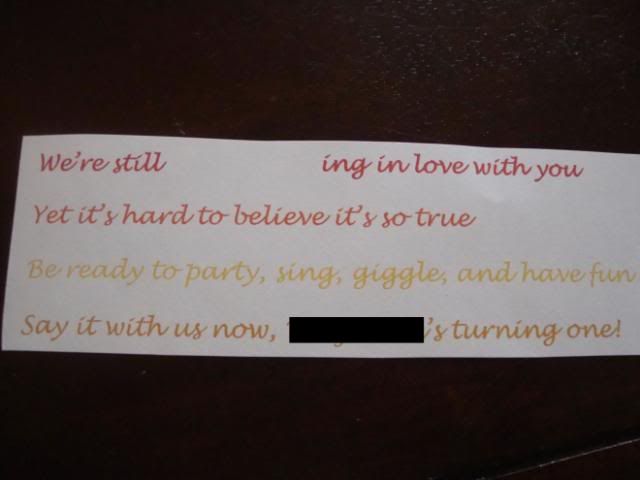 We're still ing in love with you
Yet it's hard to believe it's so true
Be ready to party, sing, giggle, and have fun
Say it with us now, 's turning one!